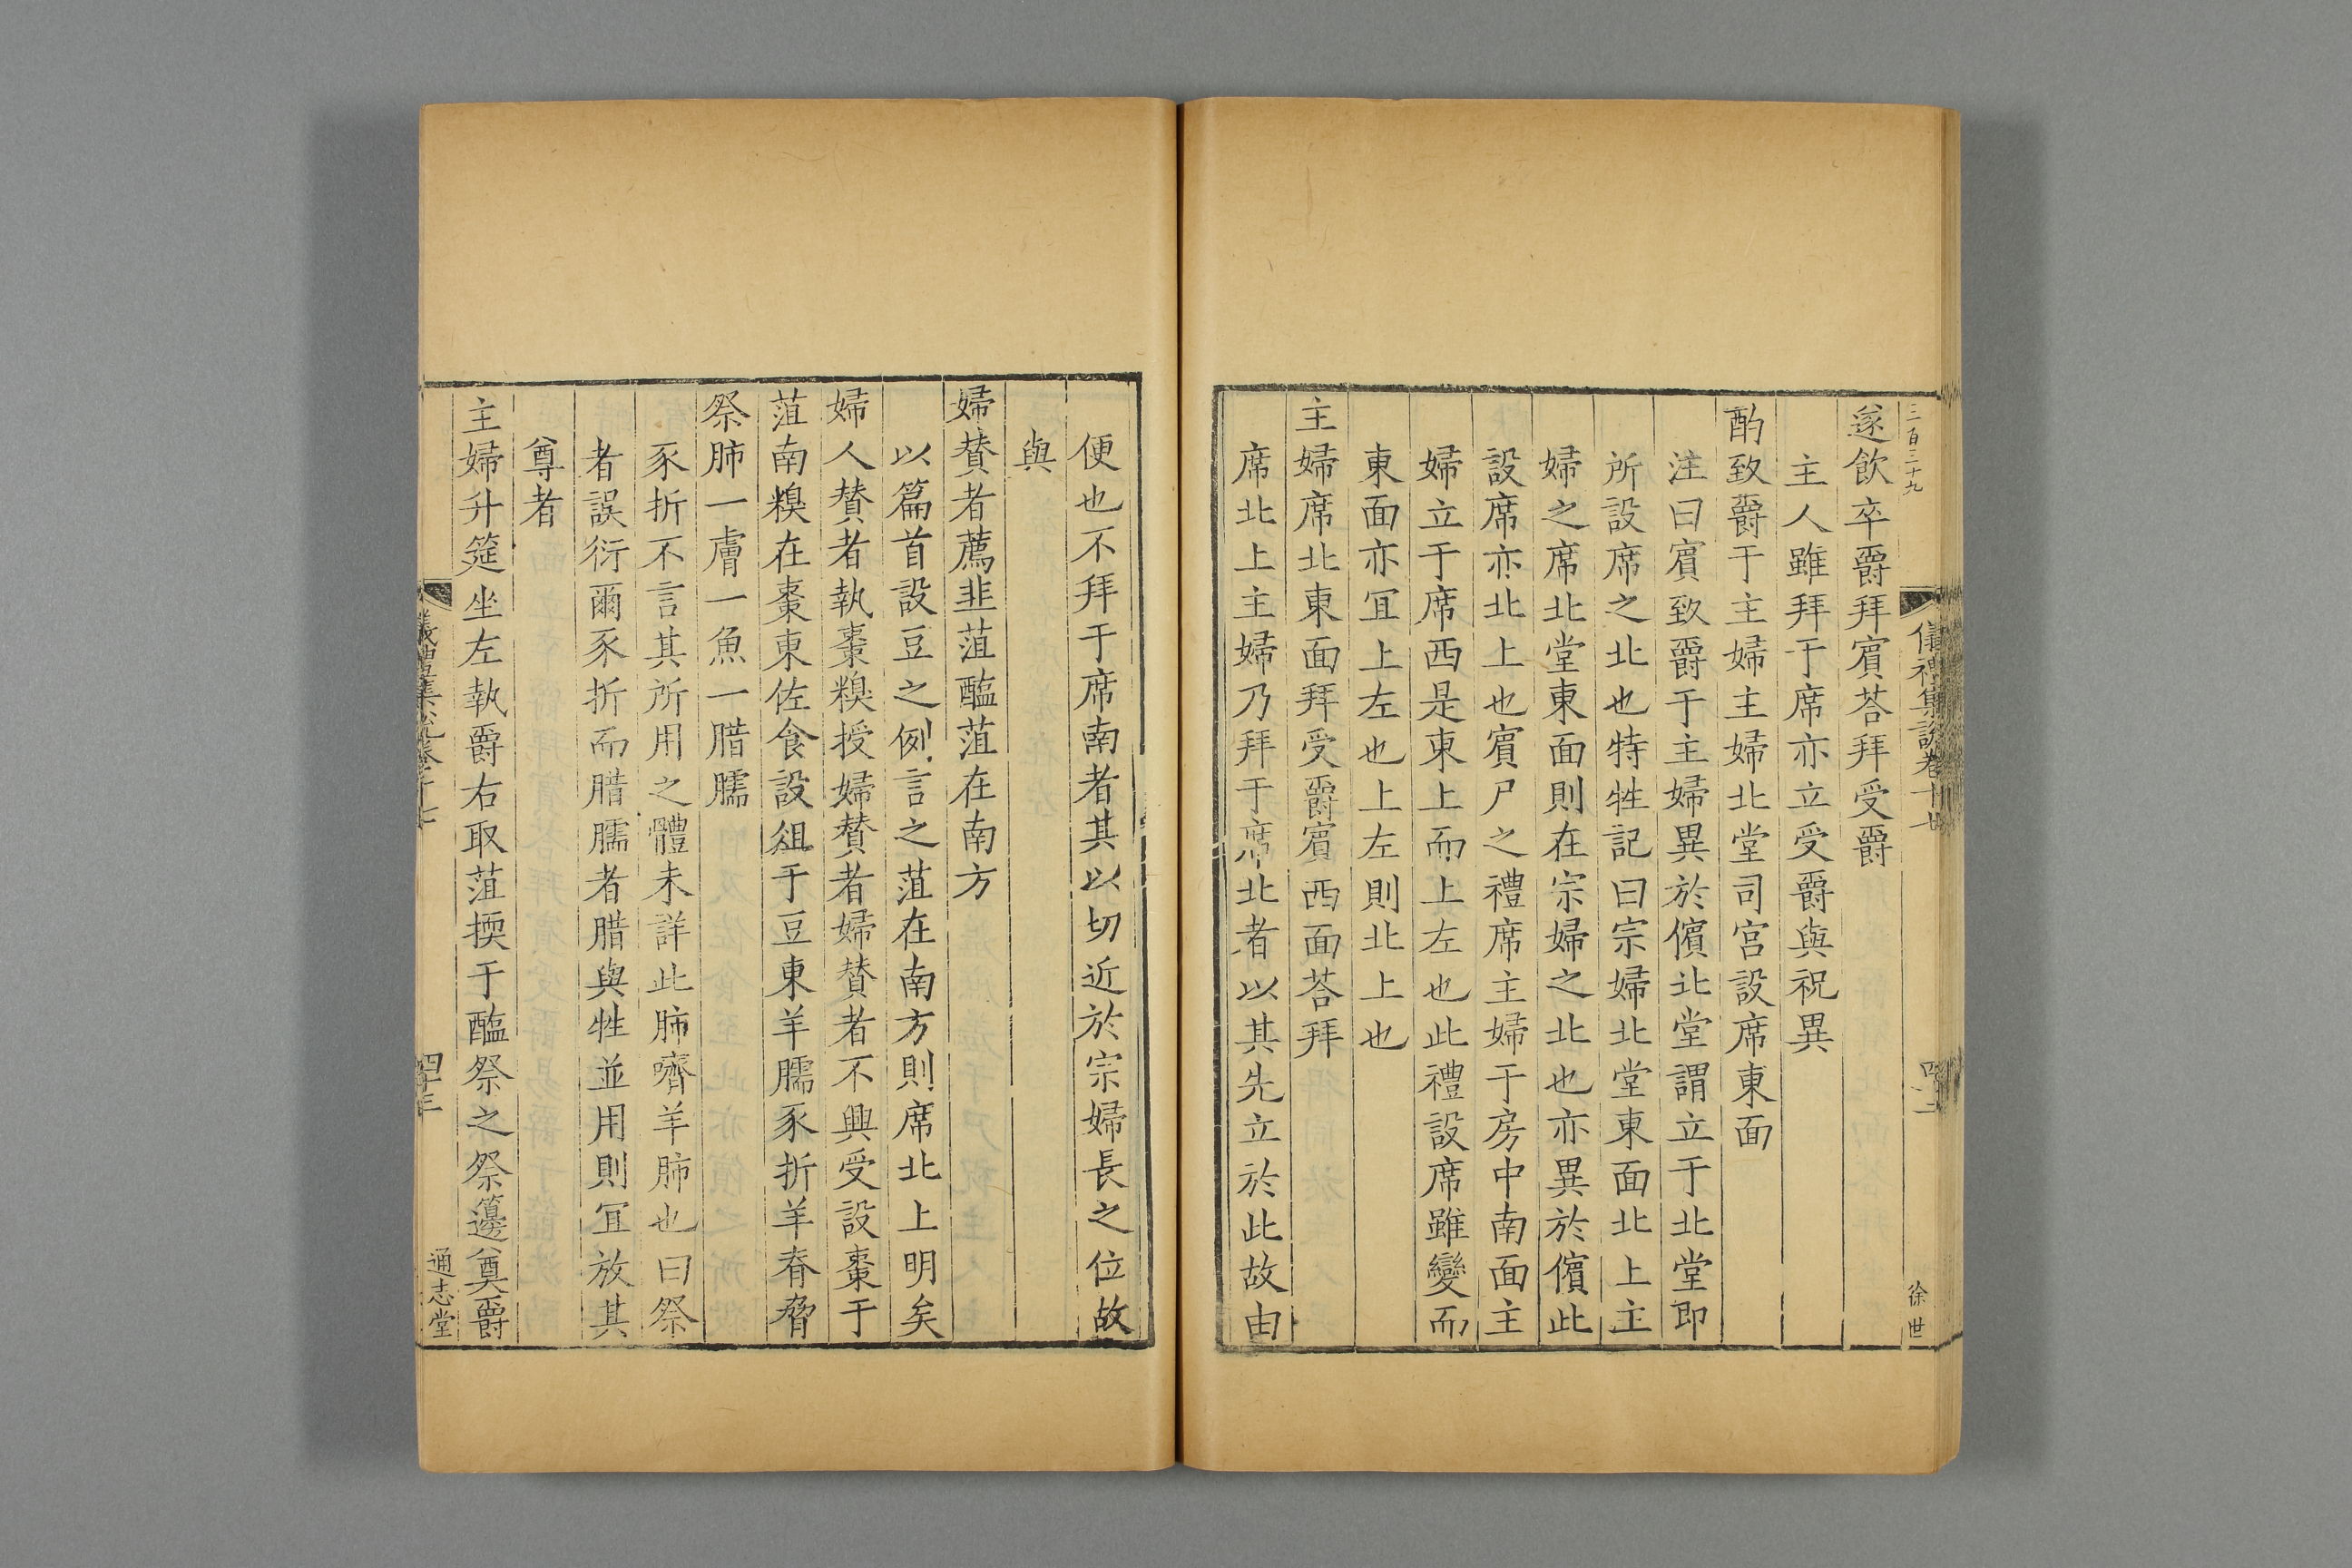 三百三十九
儀禮集說卷十七
四十二
徐世
遂飲卒爵拜賓荅拜受爵
主人雖拜于席亦立受爵與祝異
酌致爵于主婦主婦北堂司宮設席東面
注曰賓致爵于主婦異於儐北堂謂立于北堂即
所設席之北也特牲記曰宗婦北堂東面北上主
婦之席北堂東面則在宗婦之北也亦異於儐此
設席亦北上也賓尸之禮席主婦于房中南面主
婦立于席西是東上而上左也此禮設席雖變而
東面亦冝上左也上左則北上也
主婦席北東面拜受爵賓西面荅拜
席北上主婦乃拜于席北者以其先立於此故由
便也不拜于席南者其以切近於宗婦長之位故
與
婦贊者薦韭菹醢菹在南方
以篇首設豆之例言之菹在南方則席北上明矣
婦人贊者執棗糗授婦贊者婦贊者不興受設棗于
菹南糗在棗東佐食設俎于豆東羊臑豕折羊脊脅
祭肺一膚一魚一腊臑
豕折不言其所用之體未詳此肺嚌羊肺也曰祭
者誤衍爾豕折而腊臑者腊與牲並用則冝放其
尊者
主婦升筵坐左執爵右取菹擩于醢祭之祭籩奠爵
儀禮集說卷十七
四十三
通志堂